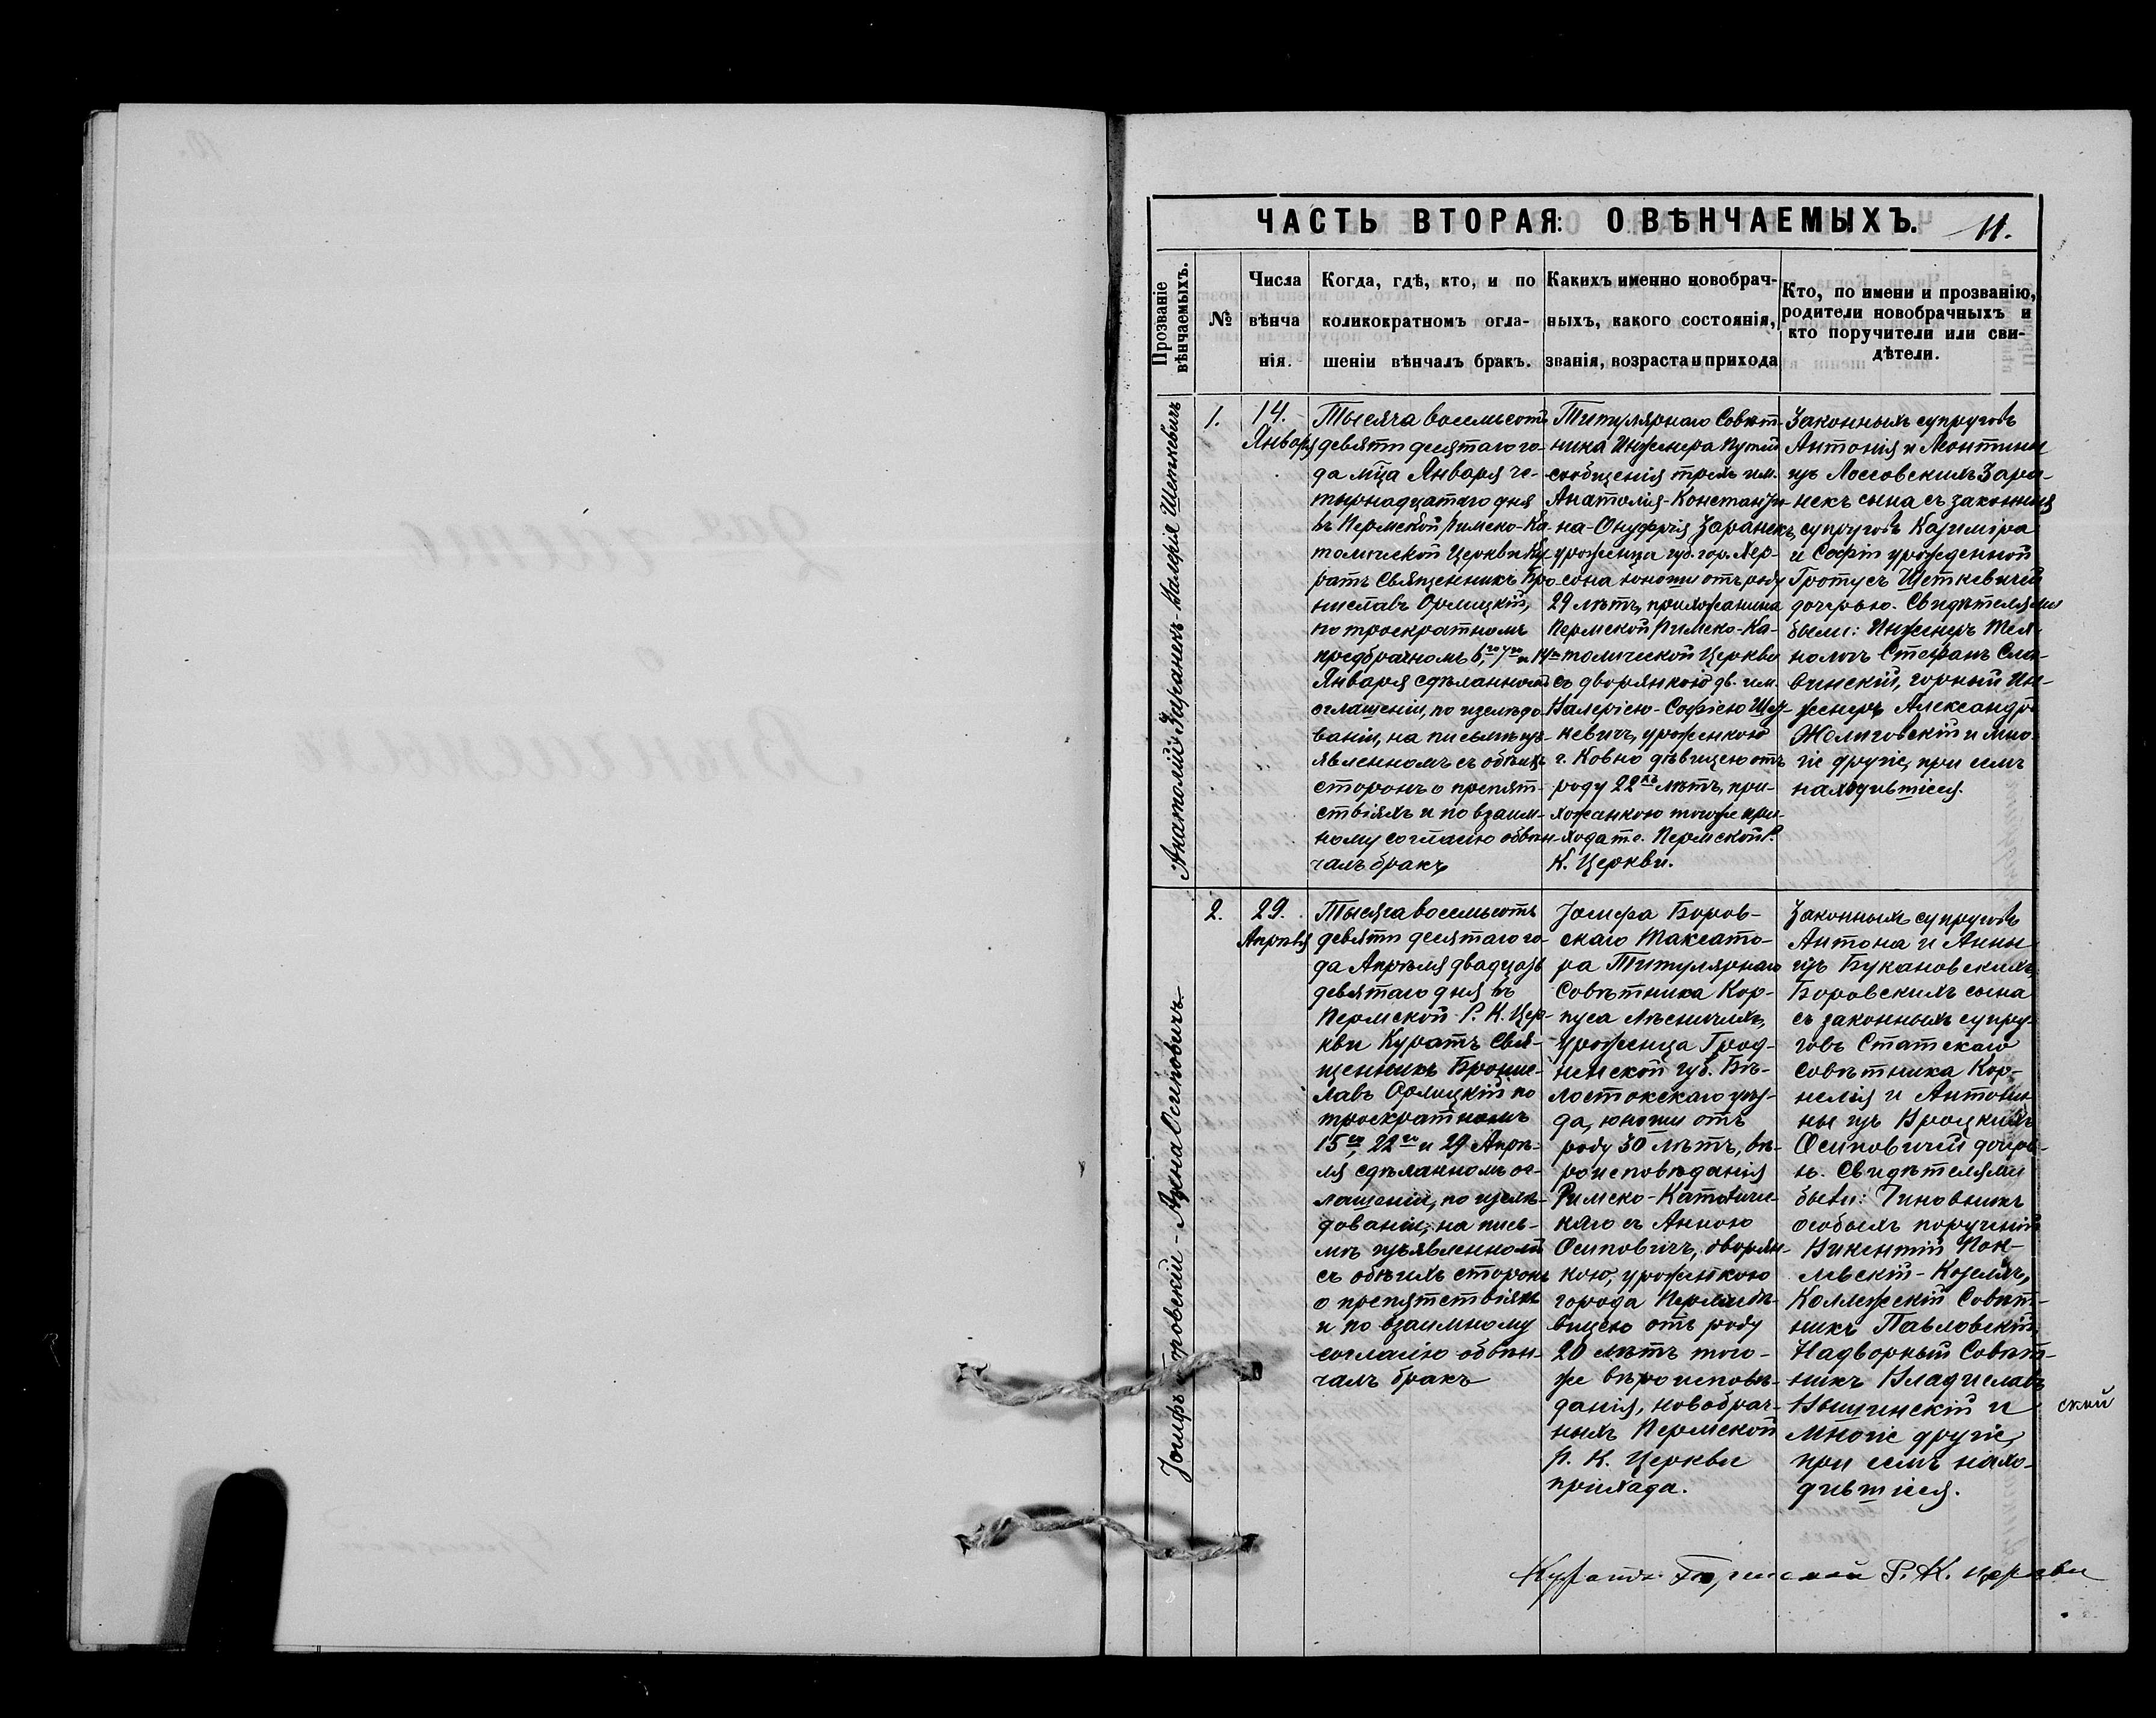 ЧАСТЬ ВТОРАЯ: О ВѢНЧАЕМЫХЪ.
11.
Прозваніе
вѣнчаемыхъ.
№
Числа
вѣнча
нія.
Когда, гдѣ, кто, и по
коликократномъ огла-
шеніи вѣнчалъ бракъ.
Какихъ именно новобрач-
ныхъ, какого состоянія,
званія, возраста и прихода
Кто, по имени и прозванію,
родители новобрачныхъ и
кто поручители или сви-
дѣтели.
Анатолій Заранекъ - Валерія Шеткевичъ
1.
14.
Январ
Тысяча восемьсотъ
девяти десятаго го-
да мца Января че-
тырнадцатаго дня
въ Пермской Римско-Ка
толической Церкви Ку
ратъ Священникъ Бро
ниславъ Орлицкій,
по троекратномъ
предбрачномъ 6,го 7го и 14го
Января сдѣланномъ
оглашеніи, по изслѣдо
ваніи, на письмѣ изъ-
явленномъ съ обѣихъ
сторонъ о препят-
ствіяхъ и по взаим-
ному согласію обвѣн
чалъ бракъ
Титулярнаго Совѣт-
ника Инженера Путей
сообщенія трехъ им.
Анатолія-Константи
на-Онуфрія Заранекъ
уроженца губ. гор. Хер-
сона юноши отъ роду
29 лѣтъ, прихожанина
Пермской Римско-Ка-
толической Церкви
съ дворянкою дв. им.
Валеріею-Софіею Шет-
кевичъ, уроженкою
г. Ковно дѣвицею отъ
роду 22хъ лѣтъ, при-
хожанкою тогоже при
хода т.е. Пермской Р.
К. Церкви.
Законныхъ супруговъ
Антонія и Леонтины
изъ Лоссовскихъ Зара-
некъ сына съ законныхъ
супруговъ Казиміра
и Софіи урожденной
Гротусъ Шеткевичей
дочерью. Свидѣтелями
были: Инженеръ Тех-
нологъ Стефанъ Сла-
винскій, горный Ин-
женеръ Александръ
Желиговскій и мно
гіе другіе, при семъ
находившіеся.
Іосифъ Боровскій - Анна Осиповичъ
2.
29.
Апрѣля
Тысяча восемьсотъ
девяти десятаго го-
да Апрѣля двадцать
девятаго дня въ
Пермской Р. К. Цер-
кви Куратъ Свя-
щенникъ Брони-
славъ Орлицкій по
троекратномъ
15го, 22го и 29 Апрѣ-
ля сдѣланномъ ог-
лашеніи, по изслѣ-
дованіи, на пись-
мѣ изъявленномъ
съ обѣихъ сторонъ
о препятствіяхъ
и по взаимному
согласію обвѣн-
чалъ бракъ
Іосифа Боров-
скаго Таксато-
ра Титулярнаго
Совѣтника Кор-
пуса Лѣсничихъ,
уроженца Грод-
ненской губ. Бѣ-
лостокскаго уѣз-
да, юноши отъ
роду 30 лѣтъ, вѣ-
роисповѣданія
Римско-Католиче
каго съ Анною
Осиповичъ, дворян-
кою, уроженкою
города Перми дѣ-
вицею отъ роду
20 лѣтъ того-
же вѣроисповѣ-
данія, новобрач-
ныхъ Пермской
Р. К. Церкви
прихода.
Законныхъ супруговъ
Антона и Анны
изъ Букановскихъ,
Боровскихъ сына
съ законныхъ супру-
говъ Статскаго
Совѣтника Кор-
нелія и Антони
ны изъ Вроцкихъ
Осиповичей дочерь-
ю. Свидѣтелями
были: Чиновникъ
особыхъ порученій
Викентій
Козеллъ,
Коллежскій Совѣт-
никъ Павловскій,
Надворный Совѣт-
никъ Владиславъ
и
многіе другіе,
при семъ нахо-
дившіеся.
ской
Куратъ Пермской Р. К. церкви